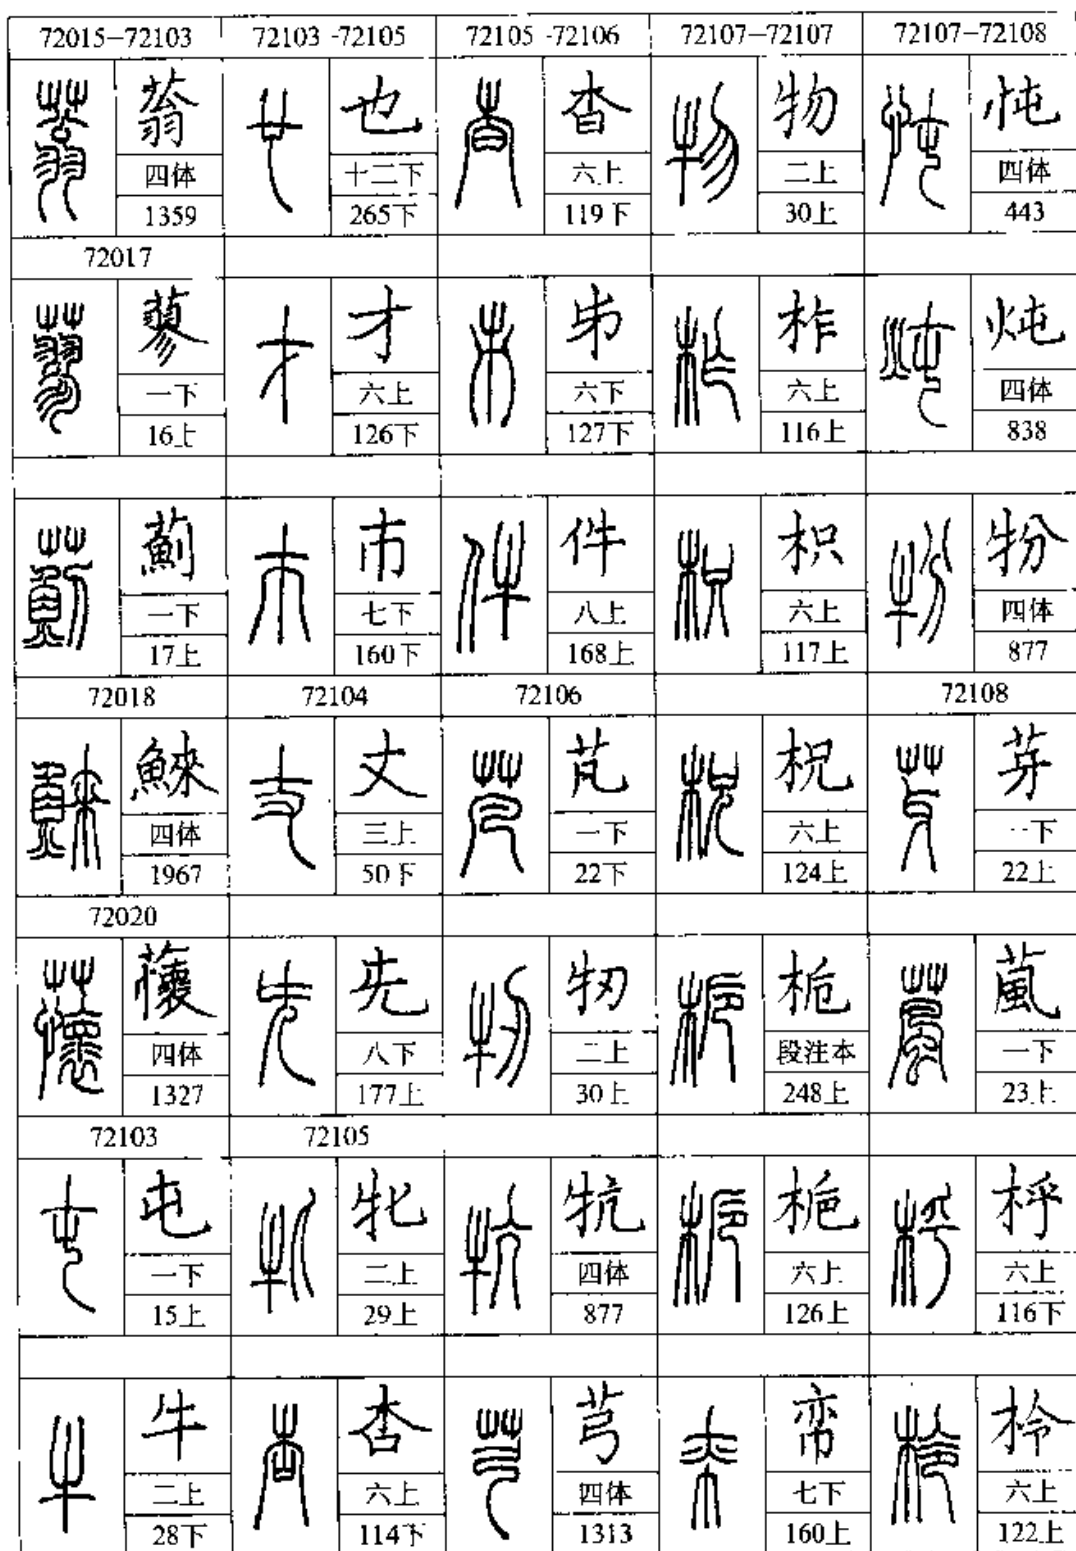 72015–72103
蓊
四体
1359
72017
蓼
一下
16上
薊
一下
17上
72018
鯠
四体
1967
72020
蘹
四体
1327
72103
屯
一下
15上
牛
二上
28下
72103-72105
也
十二下
265下
才
六上
126下
巿
七下
160下
72104
丈
三上
50下
兂
八下
177上
72105
牝
二上
29上
杏
六上
114下
72105-72106
杳
六上
119下
六下
127下
件
八上
168上
72106
芃
一下
22下
牣
二上
30上
牨
四体
877
芎
四体
1313
72107–72107
物
二上
30上
柞
六上
116上
枳
六上
117上
柷
六上
124上
栀
段注本
248上
桅
六上
126上
帟
七下
160上
72107–72108
忳
四体
443
炖
四体
838
㸮
四体
877
72108
芽
一下
22上
葻
一下
23上
㭔
六上
116下
柃
六上
122上